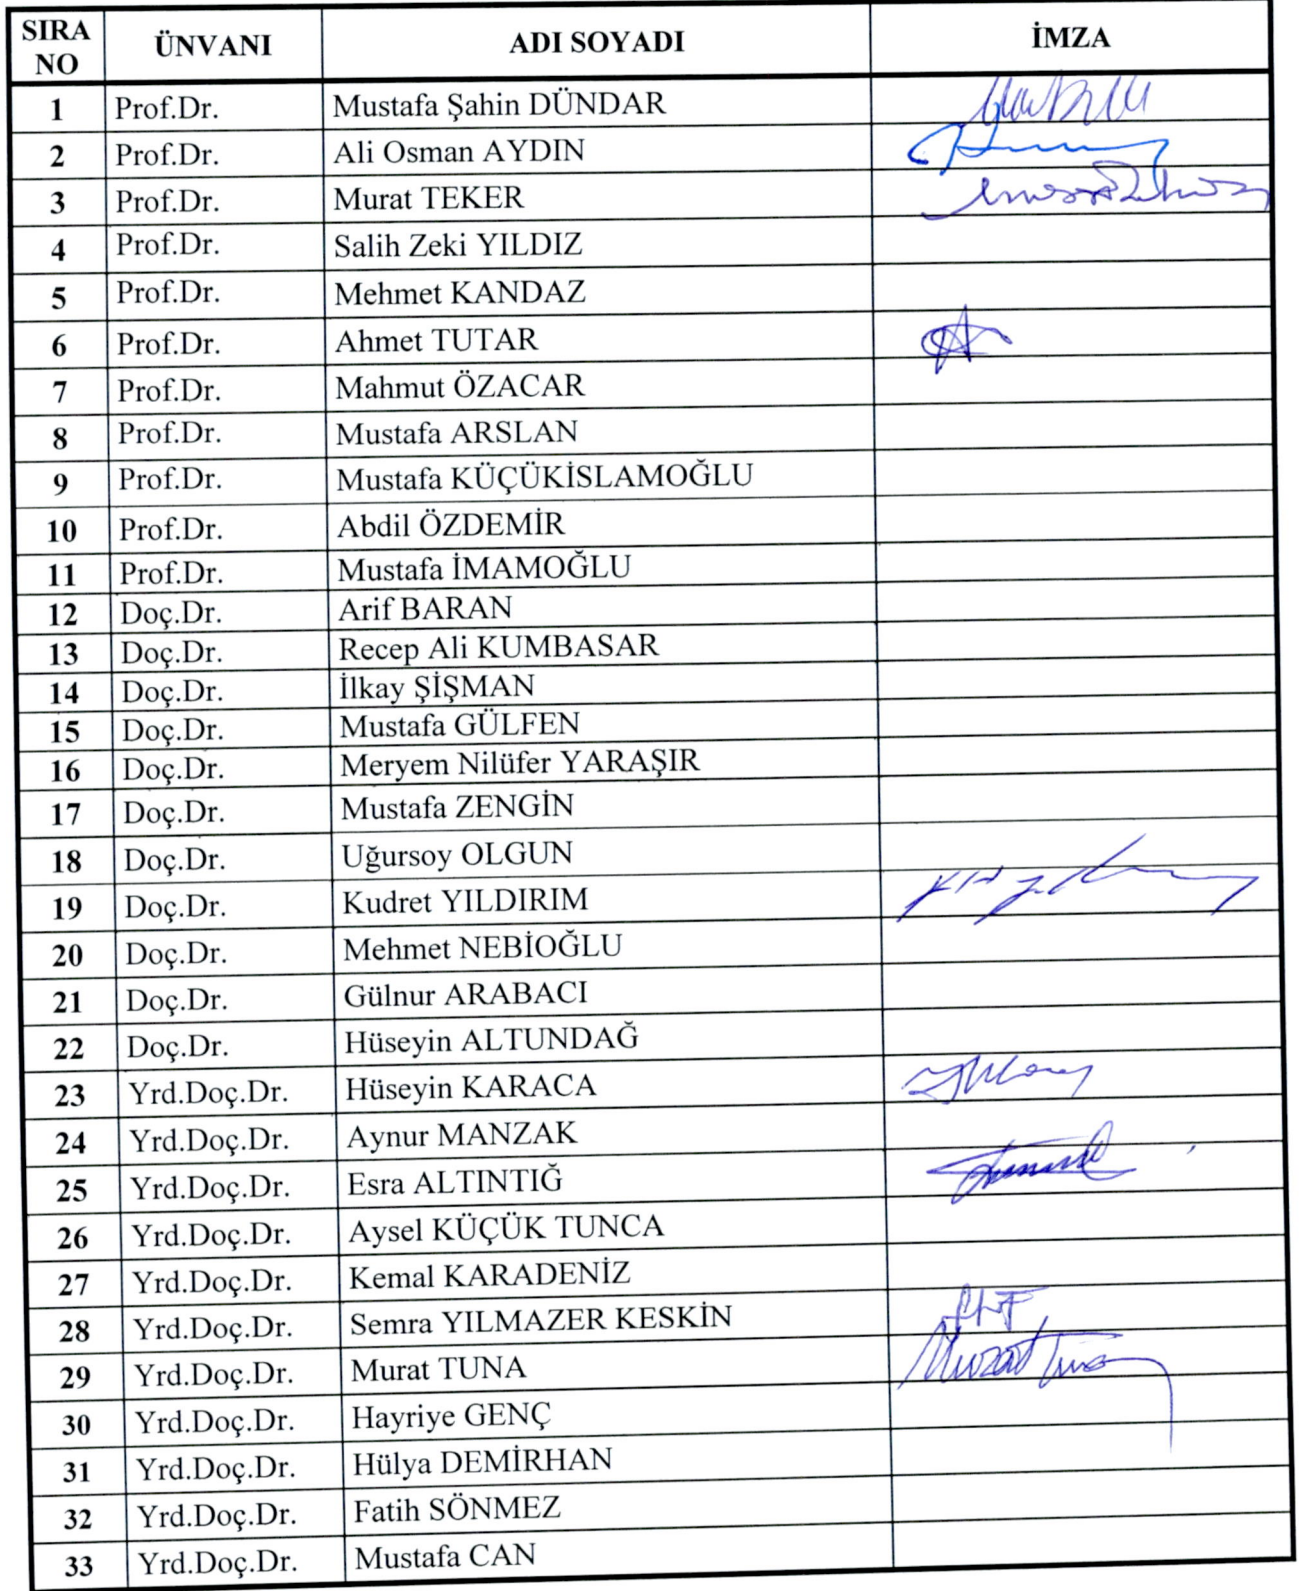 SIRA NO ÜNVANI ADI SOYADI İMZA
1 Prof.Dr. Mustafa Şahin DÜNDAR
2 Prof.Dr. Ali Osman AYDIN
3 Prof.Dr. Murat TEKER
4 Prof.Dr. Salih Zeki YILDIZ
5 Prof.Dr. Mehmet KANDAZ
6 Prof.Dr. Ahmet TUTAR
7 Prof.Dr. Mahmut ÖZACAR
8 Prof.Dr. Mustafa ARSLAN
9 Prof.Dr. Mustafa KÜÇÜKİSLAMOĞLU
10 Prof.Dr. Abdil ÖZDEMİR
11 Prof.Dr. Mustafa İMAMOĞLU
12 Doç.Dr. Arif BARAN
13 Doç.Dr. Recep Ali KUMBASAR
14 Doç.Dr. İlkay ŞİŞMAN
15 Doç.Dr. Mustafa GÜLFEN
16 Doç.Dr. Meryem Nilüfer YARAŞIR
17 Doç.Dr. Mustafa ZENGİN
18 Doç.Dr. Uğursoy OLGUN
19 Doç.Dr. Kudret YILDIRIM
20 Doç.Dr. Mehmet NEBİOĞLU
21 Doç.Dr. Gülnur ARABACI
22 Doç.Dr. Hüseyin ALTUNDAĞ
23 Yrd.Doç.Dr. Hüseyin KARACA
24 Yrd.Doç.Dr. Aynur MANZAK
25 Yrd.Doç.Dr. Esra ALTINTIĞ
26 Yrd.Doç.Dr. Aysel KÜÇÜK TUNCA
27 Yrd.Doç.Dr. Kemal KARADENİZ
28 Yrd.Doç.Dr. Semra YILMAZER KESKİN
29 Yrd.Doç.Dr. Murat TUNA Murat Tuna
30 Yrd.Doç.Dr. Hayriye GENÇ
31 Yrd.Doç.Dr. Hülya DEMİRHAN
32 Yrd.Doç.Dr. Fatih SÖNMEZ
33 Yrd.Doç.Dr. Mustafa CAN